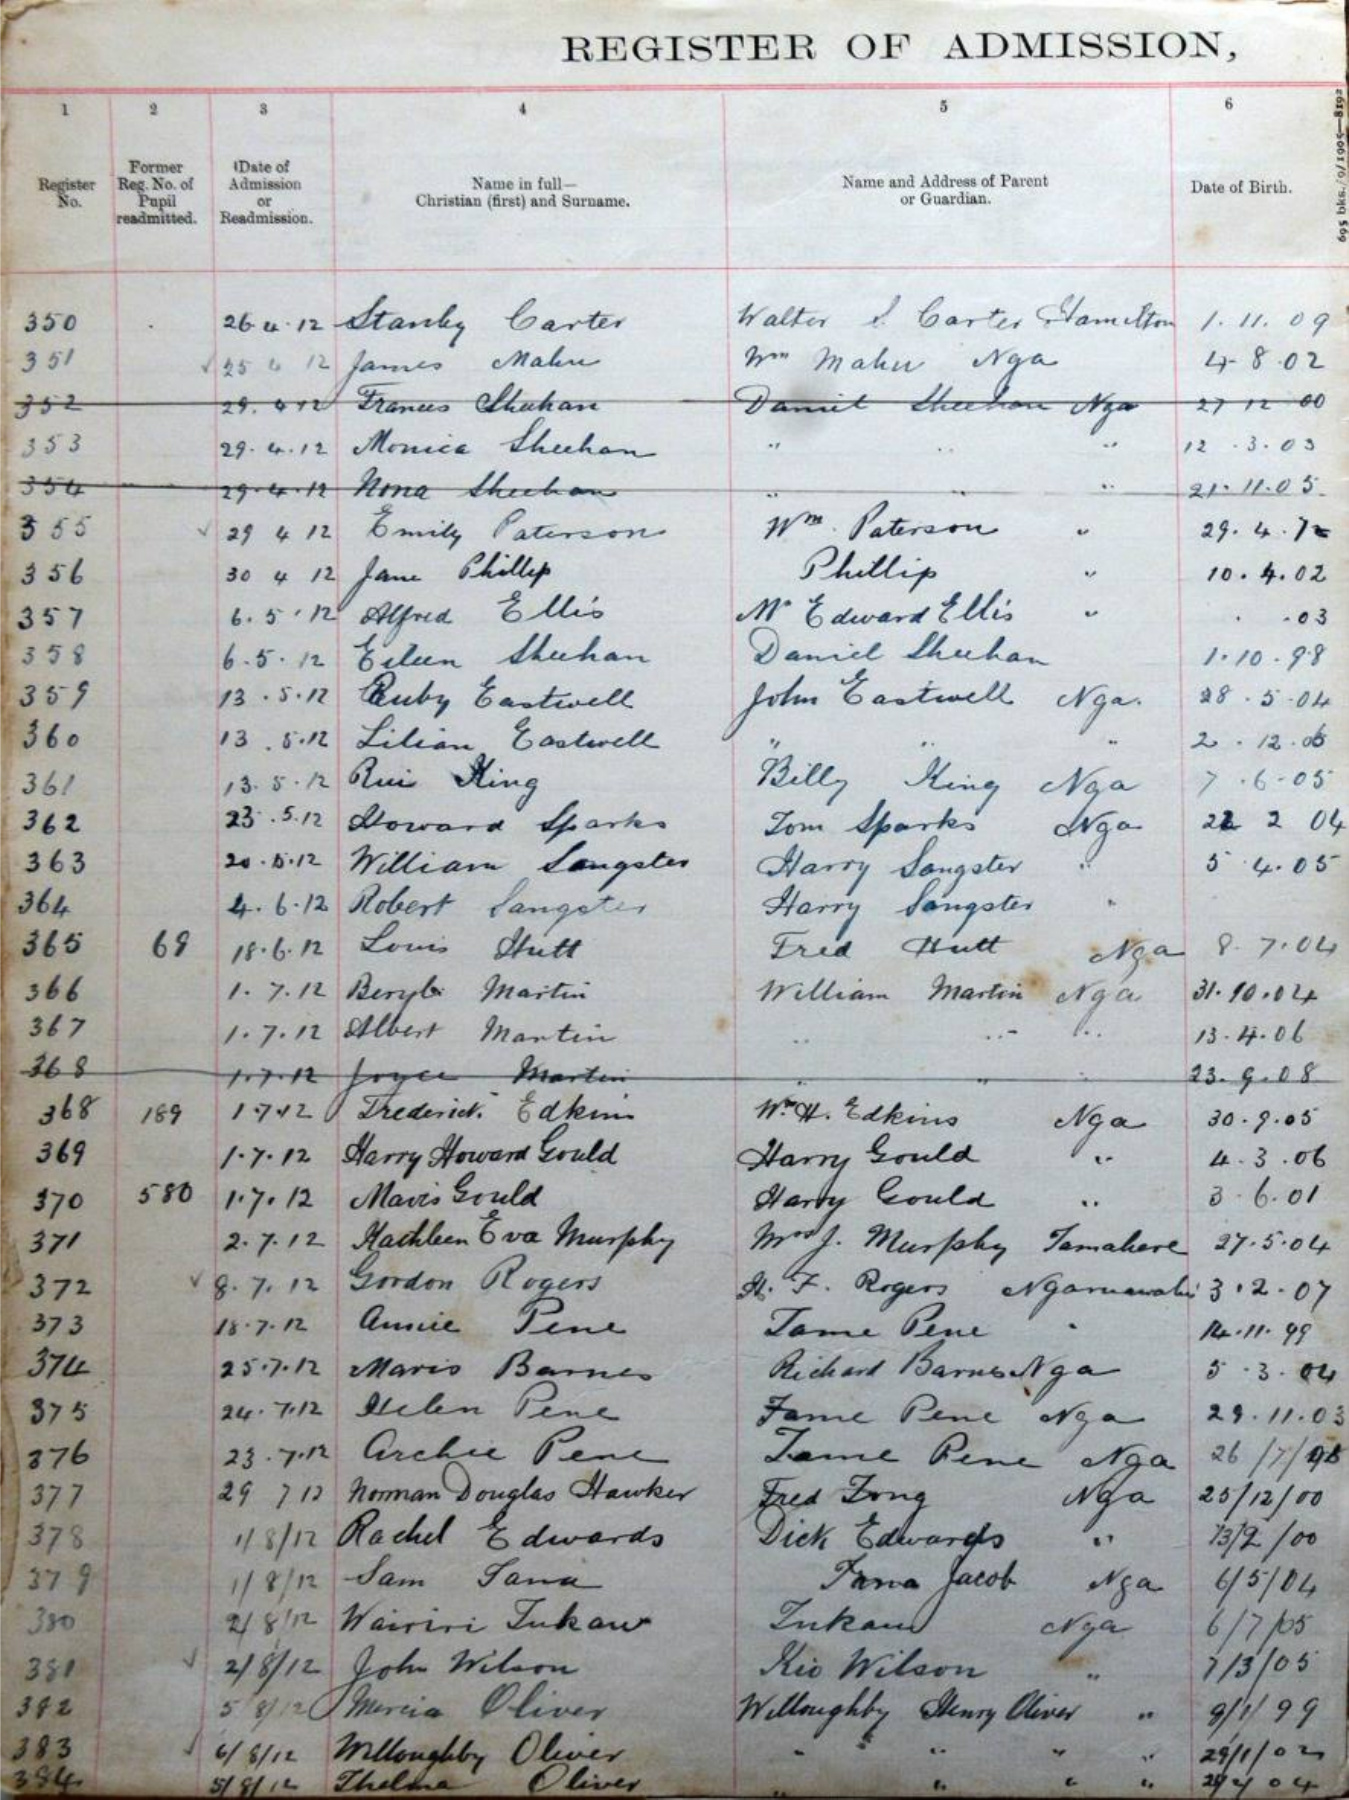 REGISTER OF ADMISSION,
1 2 3 4 5 6
Register No. Former Reg. No. of Pupil readmitted. Date of Admission or Readmission. Name in full— Christian (first) and Surname. Name and Address of Parent or Guardian. Date of Birth.
695 bks./9/1905—8192
350 26 4 12 Stanley Carter Walter S. Carter Hamilton 1. 11. 09
351 25 4 12 James Mahu Wm Mahu Nga 4 8 02
352 29. 4 12 Frances Sheehan Daniel Sheehan Nga 27 12 00
353 29. 4. 12 Monica Sheehan " " " 12 . 3. 03
354 29. 4. 12 Nona Sheehan " " " 21. 11. 05
355 29 4 12 Emily Paterson Wm. Paterson " 29. 4.
356 30 4 12 Jane Phillip Phillip " 10. 4. 02
357 6. 5. 12 Alfred Ellis Mr Edward Ellis " . . 03
358 6. 5. 12 Eileen Sheehan Daniel Sheehan 1. 10. 98
359 13. 5. 12 Ruby Eastwell John Eastwell Nga. 28. 5. 04
360 13. 5. 12 Lilian Eastwell " " " 2. 12.
361 13. 5. 12 King Billy King Nga 7. 6. 05
362 23. 5. 12 Howard Sparks Tom Sparks Nga 22 2 04
363 20. 5. 12 William Sangster Harry Sangster " 5 4. 05
364 4. 6. 12 Robert Sangster Harry Sangster "
365 69 18. 6. 12 Louis Hutt Fred Hutt Nga 8. 7. 04
366 1. 7. 12 Beryle Martin William Martin Nga 31. 10. 04
367 1. 7. 12 Albert Martin " " " 13. 4. 06
368 1. 7. 12 Joyce Martin " " " 23. 9. 08
368 189 1 7 12 Frederick Edkins Wm H. Edkins Nga 30. 9. 05
369 1. 7. 12 Harry Howard Gould Harry Gould " 4. 3. 06
370 580 1. 7. 12 Mavis Gould Harry Gould " 3. 6. 01
371 2. 7. 12 Kathleen Eva Murphy Mrs J. Murphy Tamahere 27. 5. 04
372 8. 7. 12 Gordon Rogers H. F. Rogers Ngaruawahia 3. 2. 07
373 18. 7. 12 Annie Pene Tame Pene " 14. 11. 99
374 25. 7. 12 Mavis Barnes Richard Barnes Nga 5. 3. 04
375 24. 7. 12 Helen Pene Tame Pene Nga 29. 11. 03
376 23. 7. 12 Archie Pene Tame Pene Nga 26/7/98
377 29 7 12 Norman Douglas Hawker Fred Zong Nga 25/12/00
378 1/8/12 Rachel Edwards Dick Edwards " 13/2/00
379 1/8/12 Sam Tana Tana Jacob Nga 6/5/04
380 2/8/12 Wairiri Tukaw Tukaw Nga 6/7/05
381 2/8/12 John Wilson Kio Wilson " 7/3/05
382 5/8/12 Mercia Oliver Willoughby Henry Oliver " 9/1/99
383 6/8/12 Willoughby Oliver " " " " 29/1/02
384 5/8/12 Thelma Oliver " " " " 04